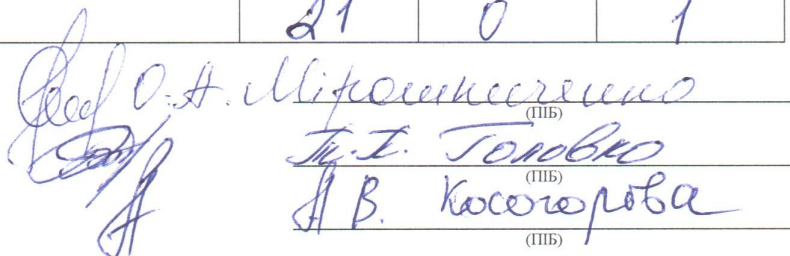 21 0 1
О.А. Мірошниченко
(ПІБ)
Т.П. Головко
(ПІБ)
А В. Косогорова
(ПІБ)